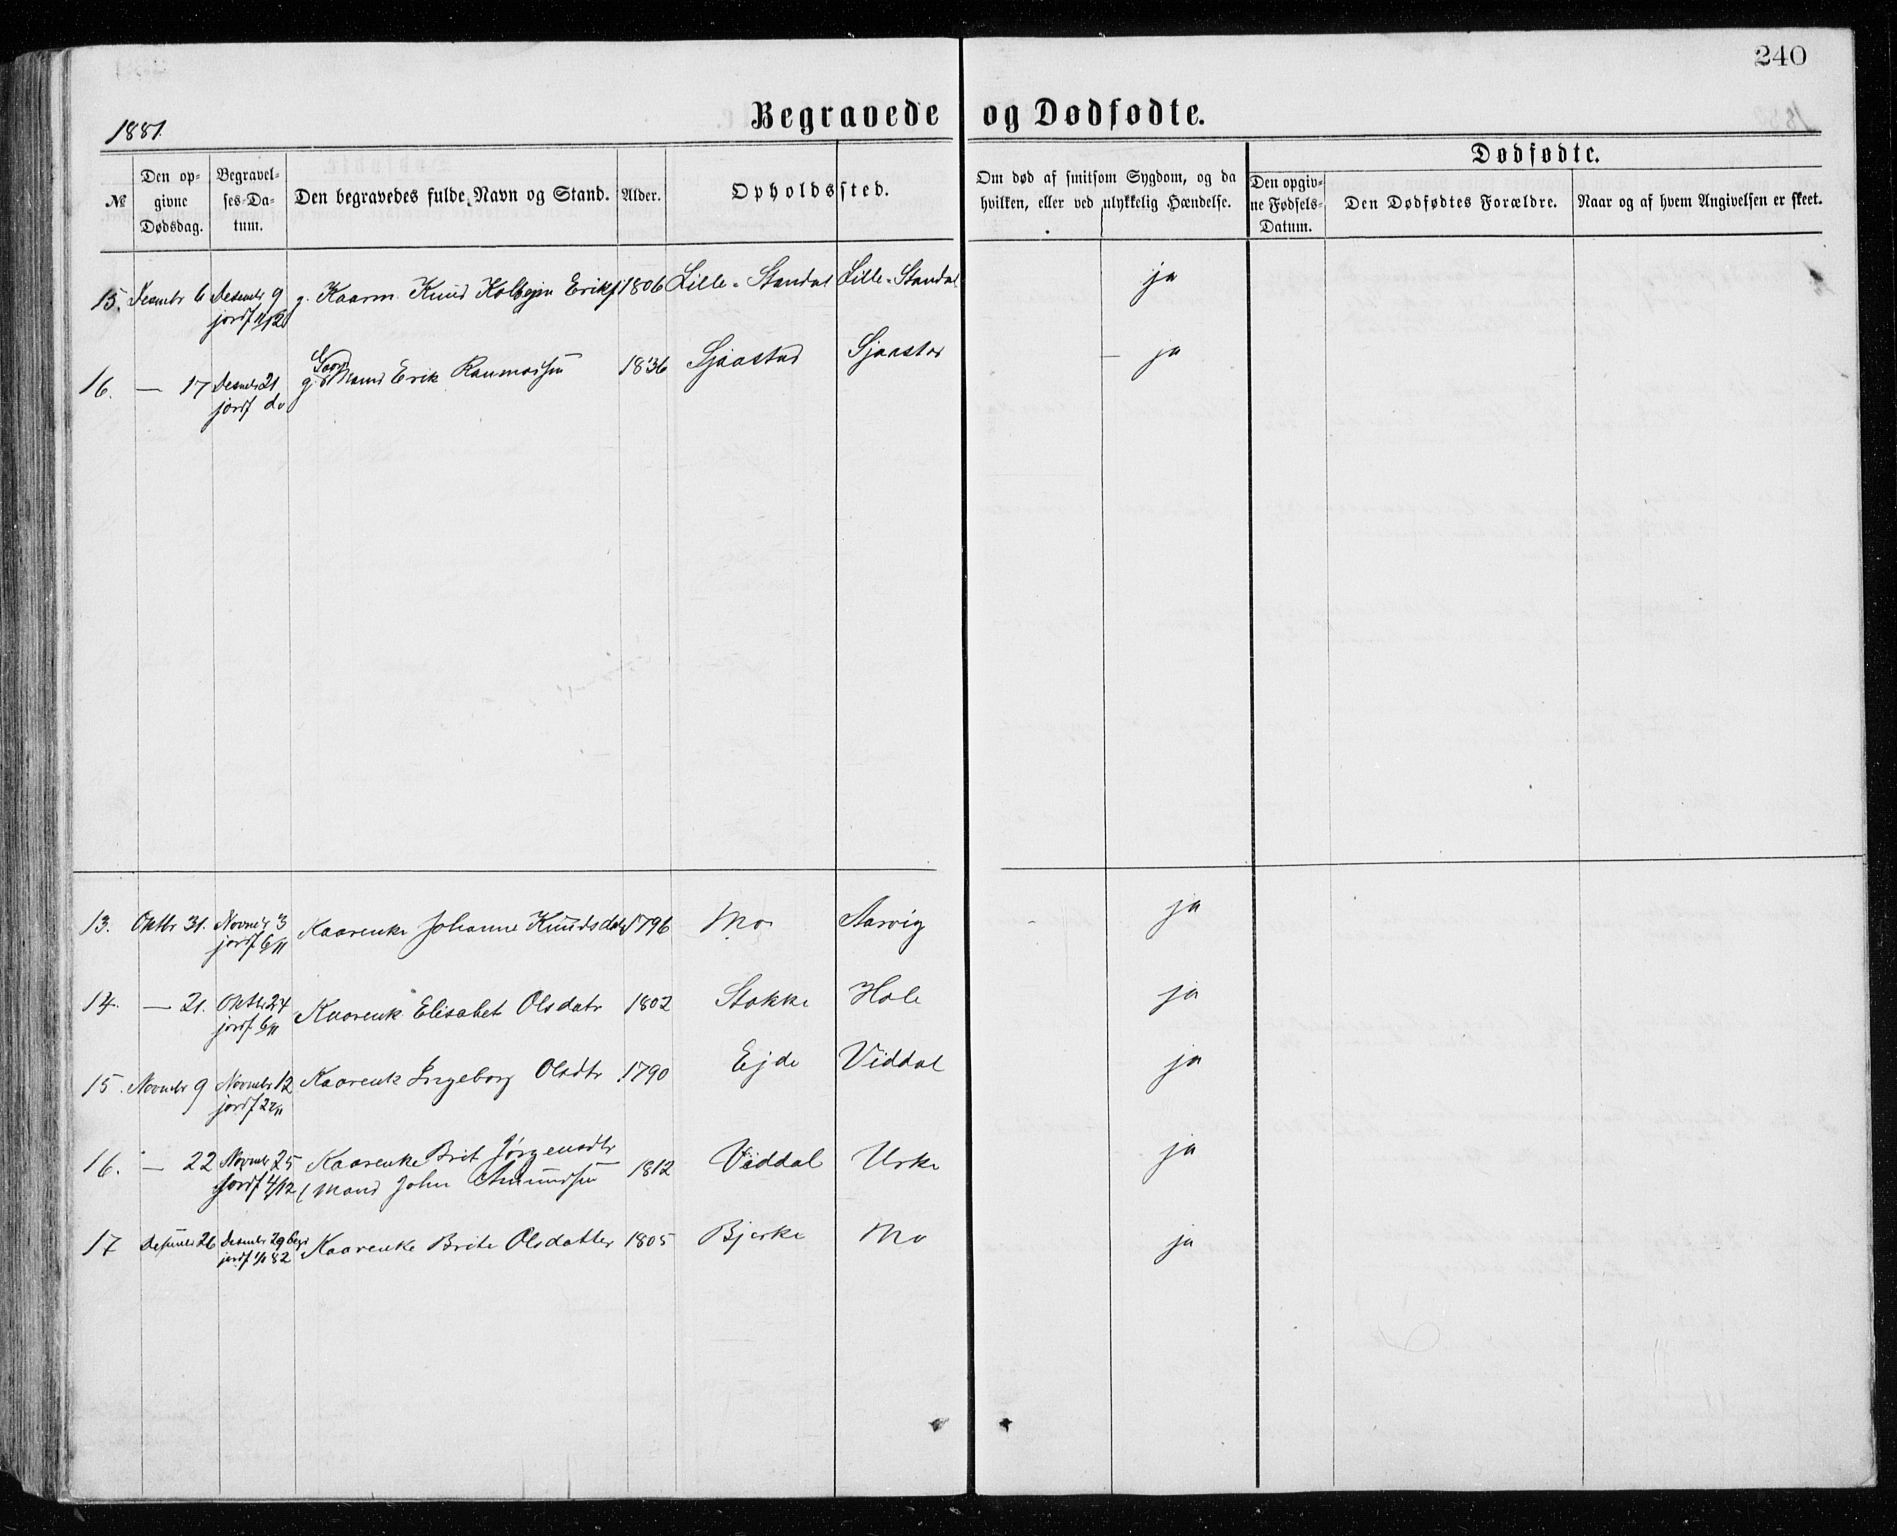 240
1881.
Begravede og Dødfødte.
№
Den op-
givne
Dødsdag.
Begravel-
ses-Da-
tum.
Den begravedes fulde Navn og Stand.
Alder.
Opholdssted.
Om død af smitsom Sygdom, og da
hvilken, eller ved ulykkelig Hændelse.
Dødfødte.
Den opgiv-
ne Fødsels-
Datum.
Den Dødfødtes Forældre.
Naar og af hvem Angivelsen er skeet.
15. Desmbr 6 Desembr 9 g. Kaarm. Knud Kolbejn Eriks 1806 Lille-Standal Lille-Standal ja
jordf 11/12
16. — 17 Desmbr 21 g. Gaard Mand Erik Rasmussen 1836 Sjaastad Sjaastad — ja
jordf do
13. Oktbr 31. Novmbr 3 Kaarenke Johanne Knudsdatr 1796 Mo Aarvig ja
jordf 6/11
14. — 21. Oktbr 24 Kaarenk Elisabet Olsdatr 1802 Stokke Hole ja
jordf 6/11
15. Novmbr 9 Novmbr 12 Kaarenk Ingeborg Olsdtr 1790 Ejde Viddal ja
jordf 27/11
16. — 22 Novmbr 25 Kaarenke Brit Jørgensdtr 1812 Viddal Urke ja
jordf 4/12 (Mand John Amundsen
17 Desmbr 26 Desmbr 29 Kaarenke Brite Olsdatter 1805 Bjerke Mo ja
jordf 1/1 82